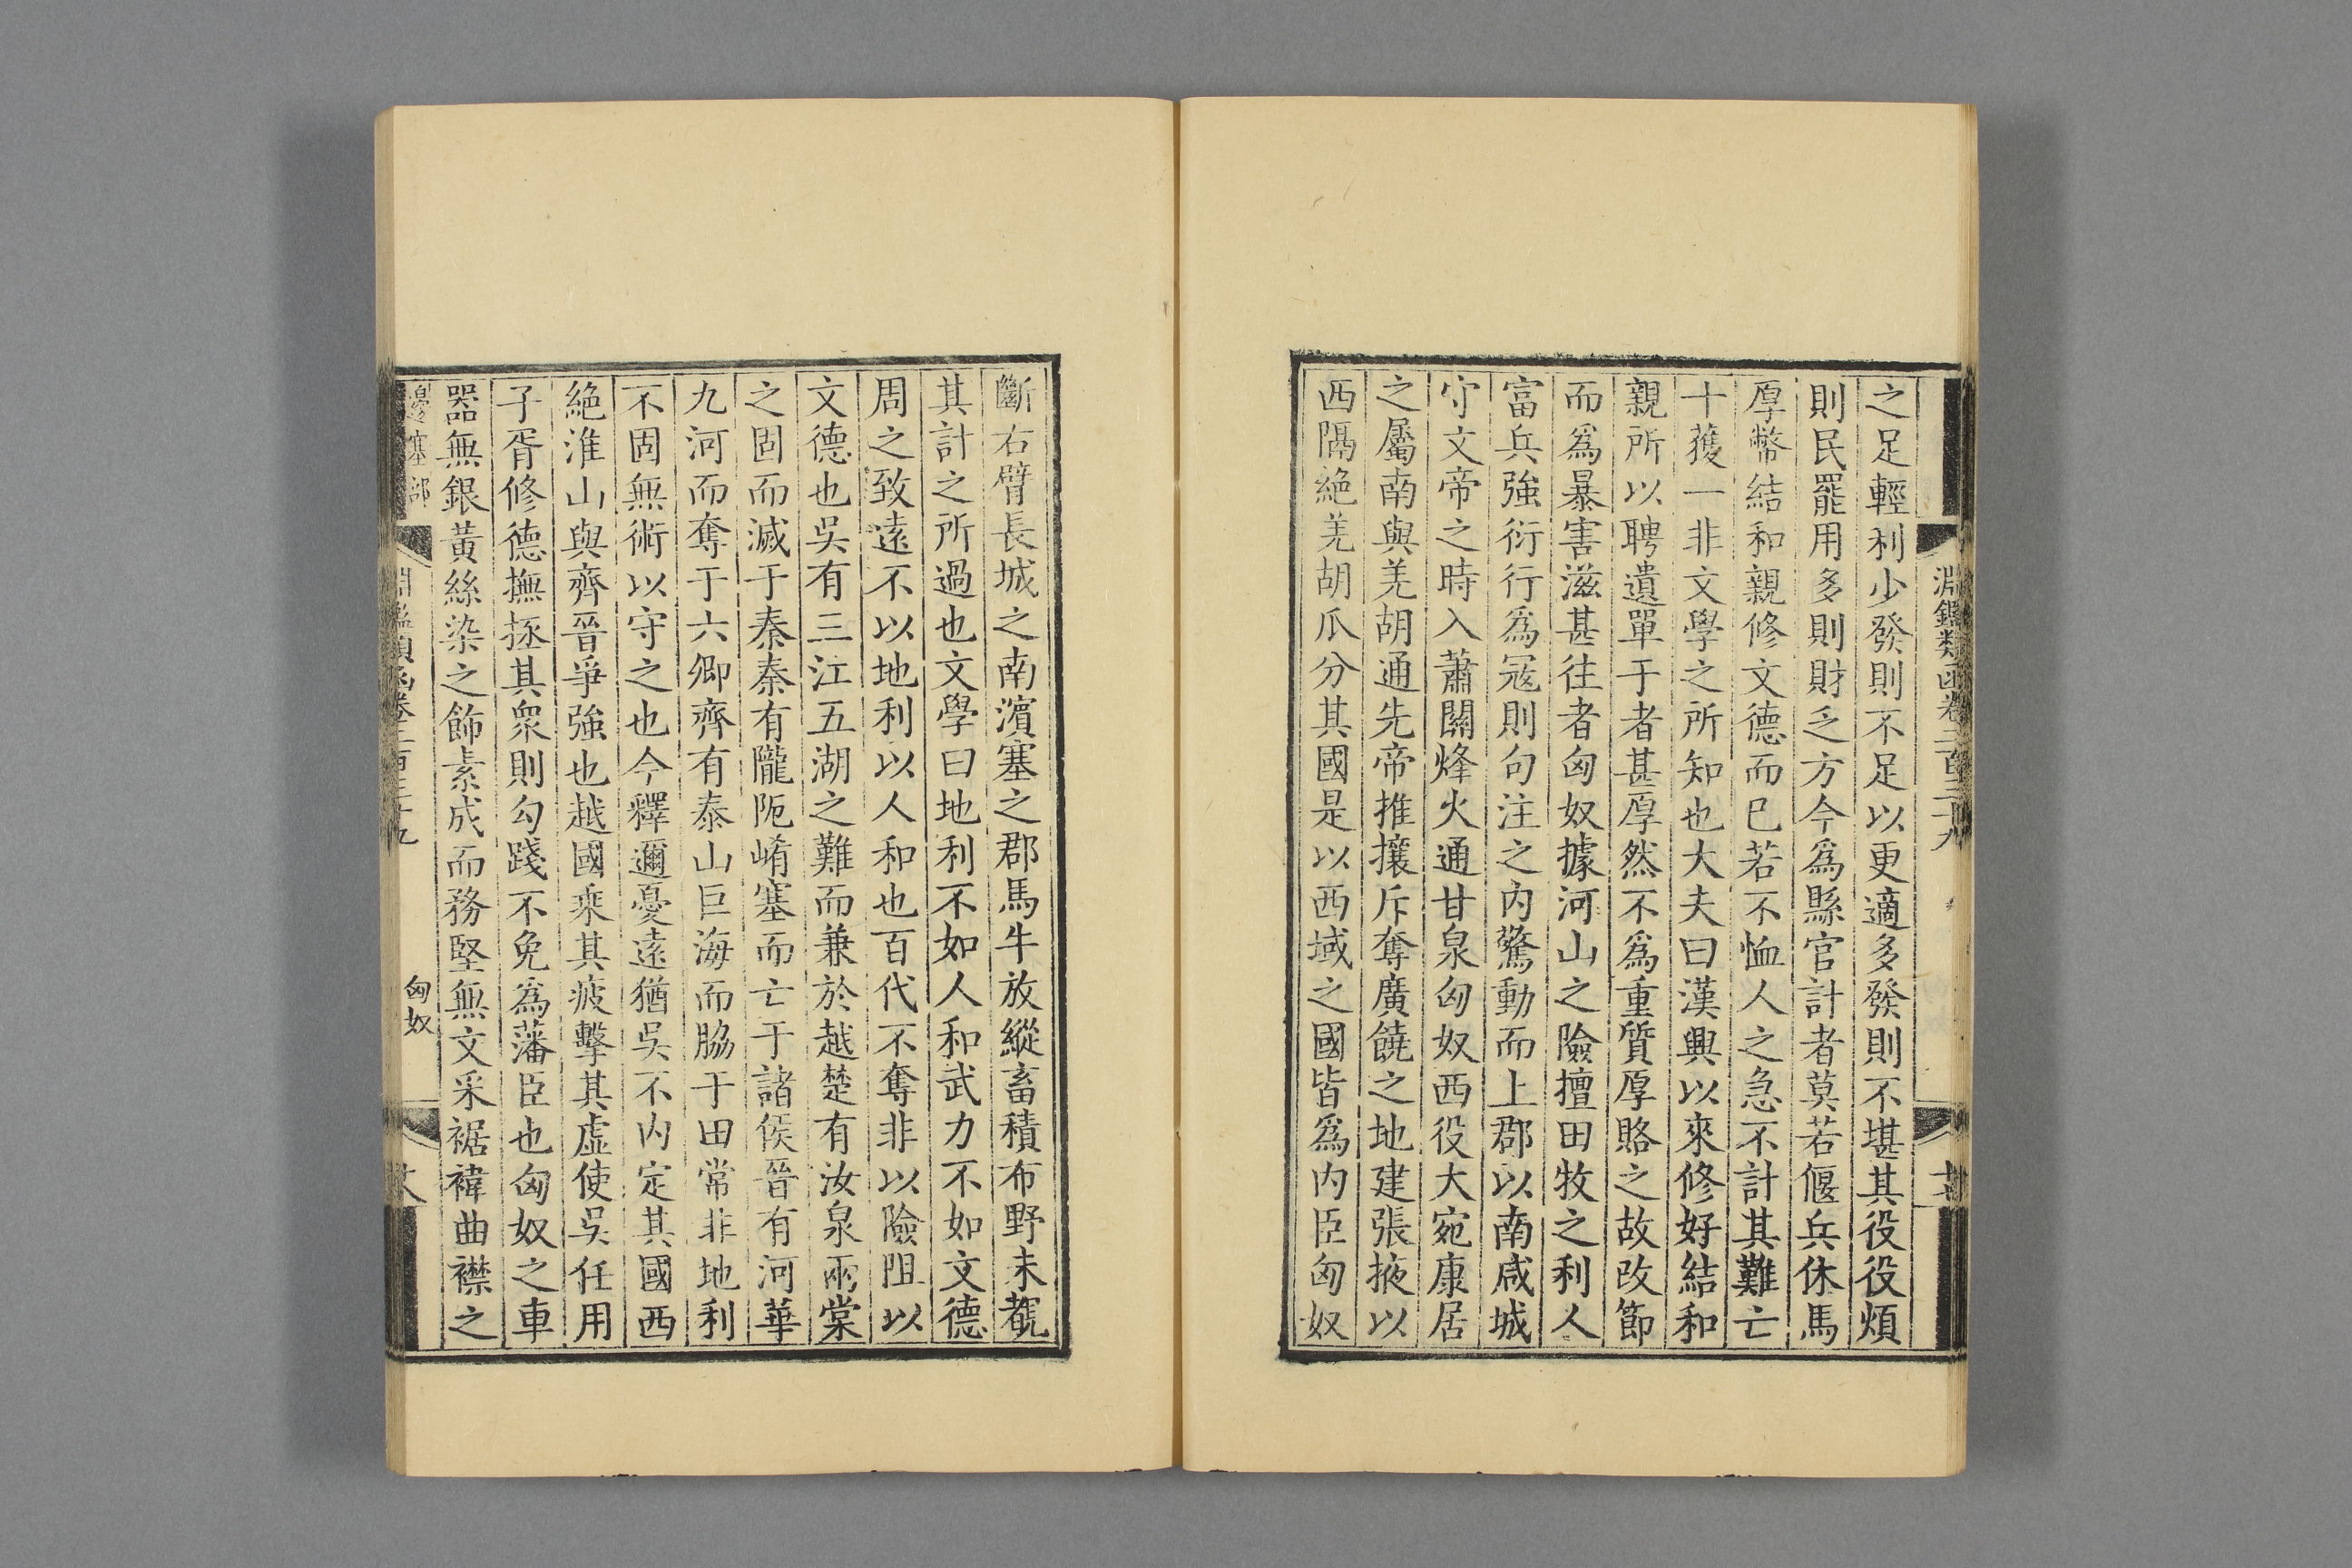 淵鑑類函卷二百三十九
之足輕利少發則不足以更適多發則不堪其役役煩
則民罷用多則財乏方今爲縣官計者莫若偃兵休馬
厚幣結和親修文德而已若不恤人之急不計其難亡
十獲一非文學之所知也大夫曰漢興以來修好結和
親所以聘遺單于者甚厚然不爲重質厚賂之故改節
而爲暴害滋甚往者匈奴據河山之險擅田牧之利人
富兵強衍行爲寇則句注之內驚動而上郡以南咸城
守文帝之時入蕭關烽火通甘泉匈奴西役大宛康居
之屬南與羌胡通先帝推攘斥奪廣饒之地建張掖以
西隔絶羌胡瓜分其國是以西域之國皆爲內臣匈奴
斷右臂長城之南濵塞之郡馬牛放縱畜積布野未覩
其計之所過也文學曰地利不如人和武力不如文德
周之致遠不以地利以人和也百代不奪非以險阻以
文德也吳有三江五湖之難而兼於越楚有汝泉兩棠
之固而滅于秦秦有隴阨崤塞而亡于諸侯晉有河華
九河而奪于六卿齊有泰山巨海而脇于田常非地利
不固無術以守之也今釋邇憂遠猶吳不內定其國西
絶淮山與齊晉爭強也越國乘其疲擊其虛使吳任用
子胥修德撫拯其衆則勾踐不免爲藩臣也匈奴之車
器無銀黃絲染之飾素成而務堅無文采裾褘曲襟之
邊塞部 淵鑑類函卷二百三十九 匈奴